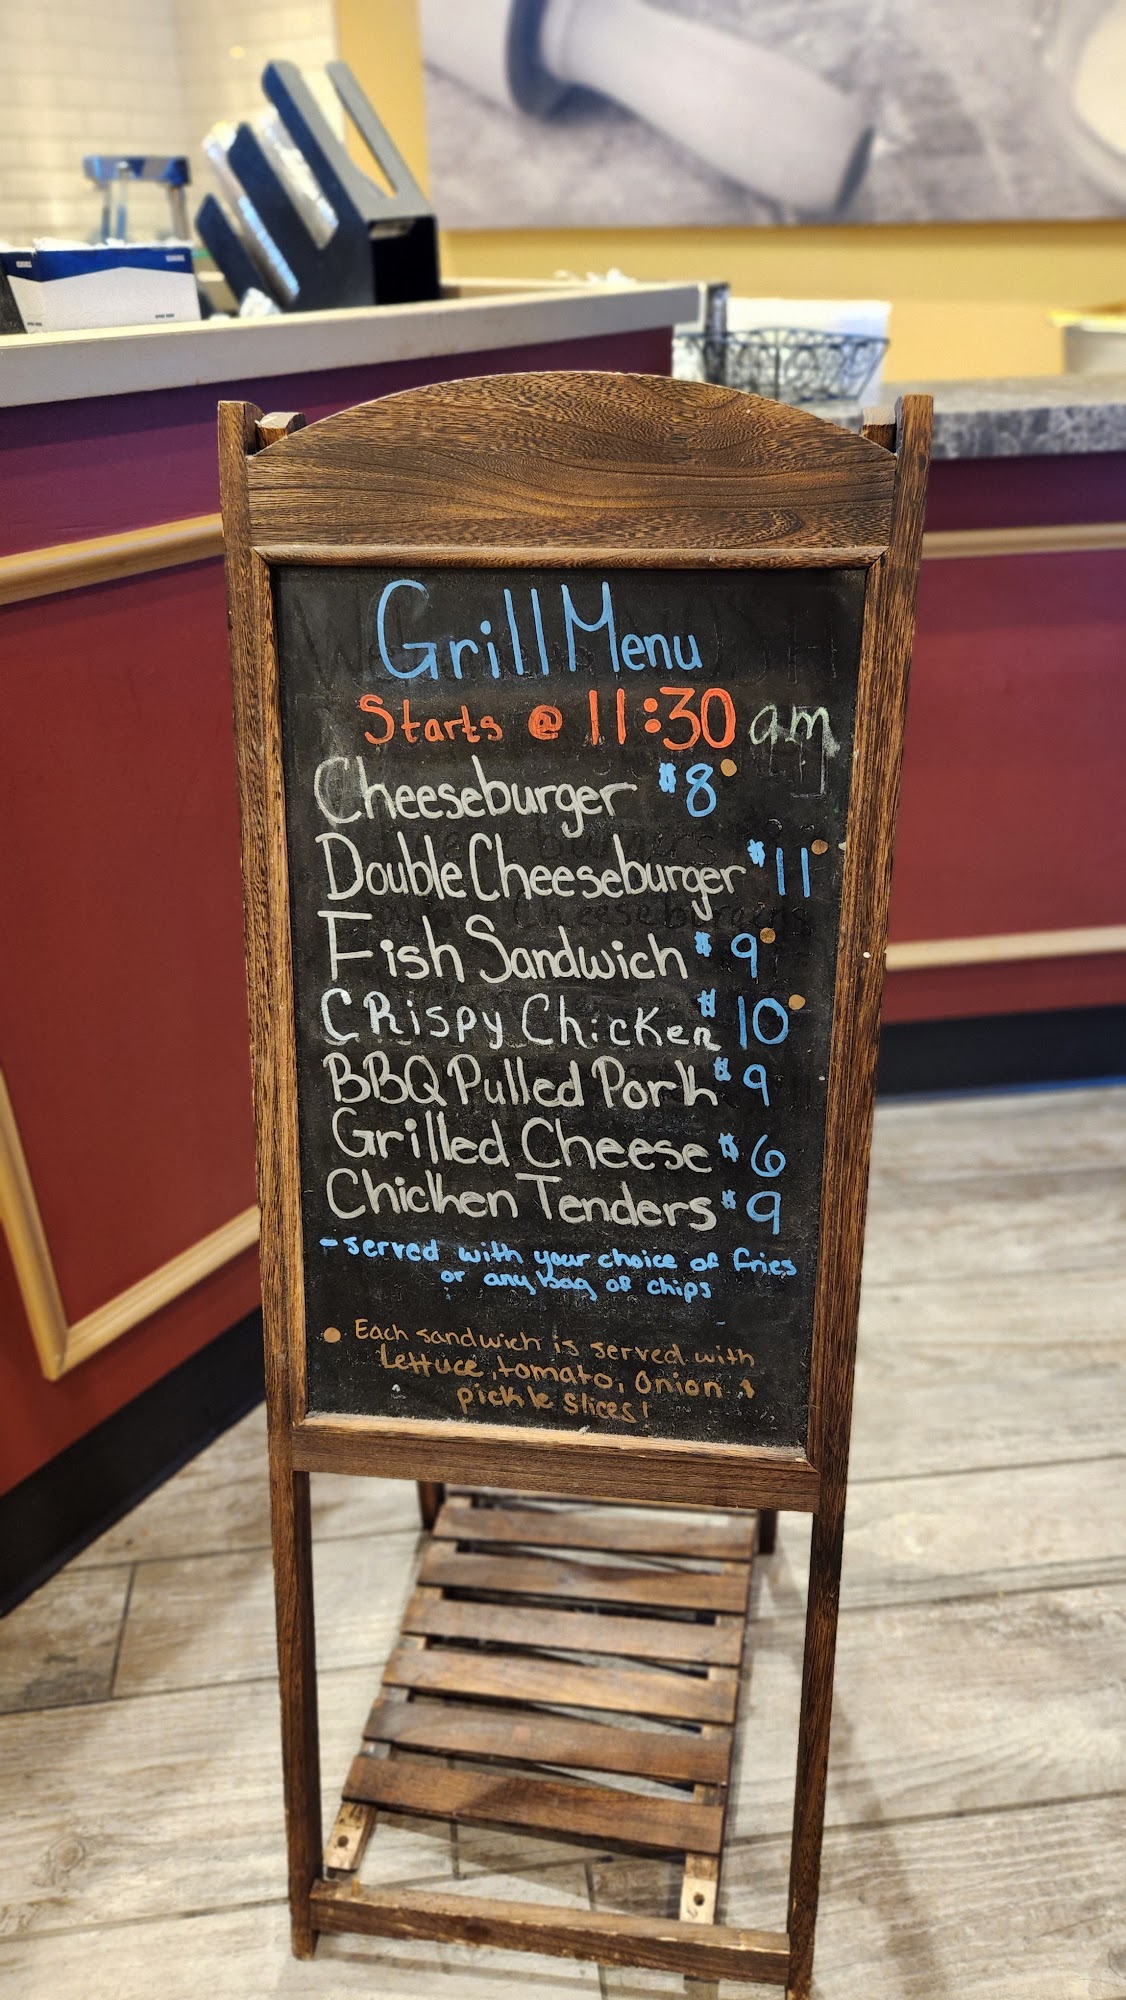 Grill Menu
Starts @ 11:30 am
Cheeseburger $8
Double Cheeseburger $11
Fish Sandwich $9
CRispy ChicKen $10
BBQ Pulled Pork $9
Grilled Cheese $6
Chicken Tenders $9
- served with your choice of fries
or any bag of chips
• Each sandwich is served with
Lettuce, tomato, onion &
pickle slices!